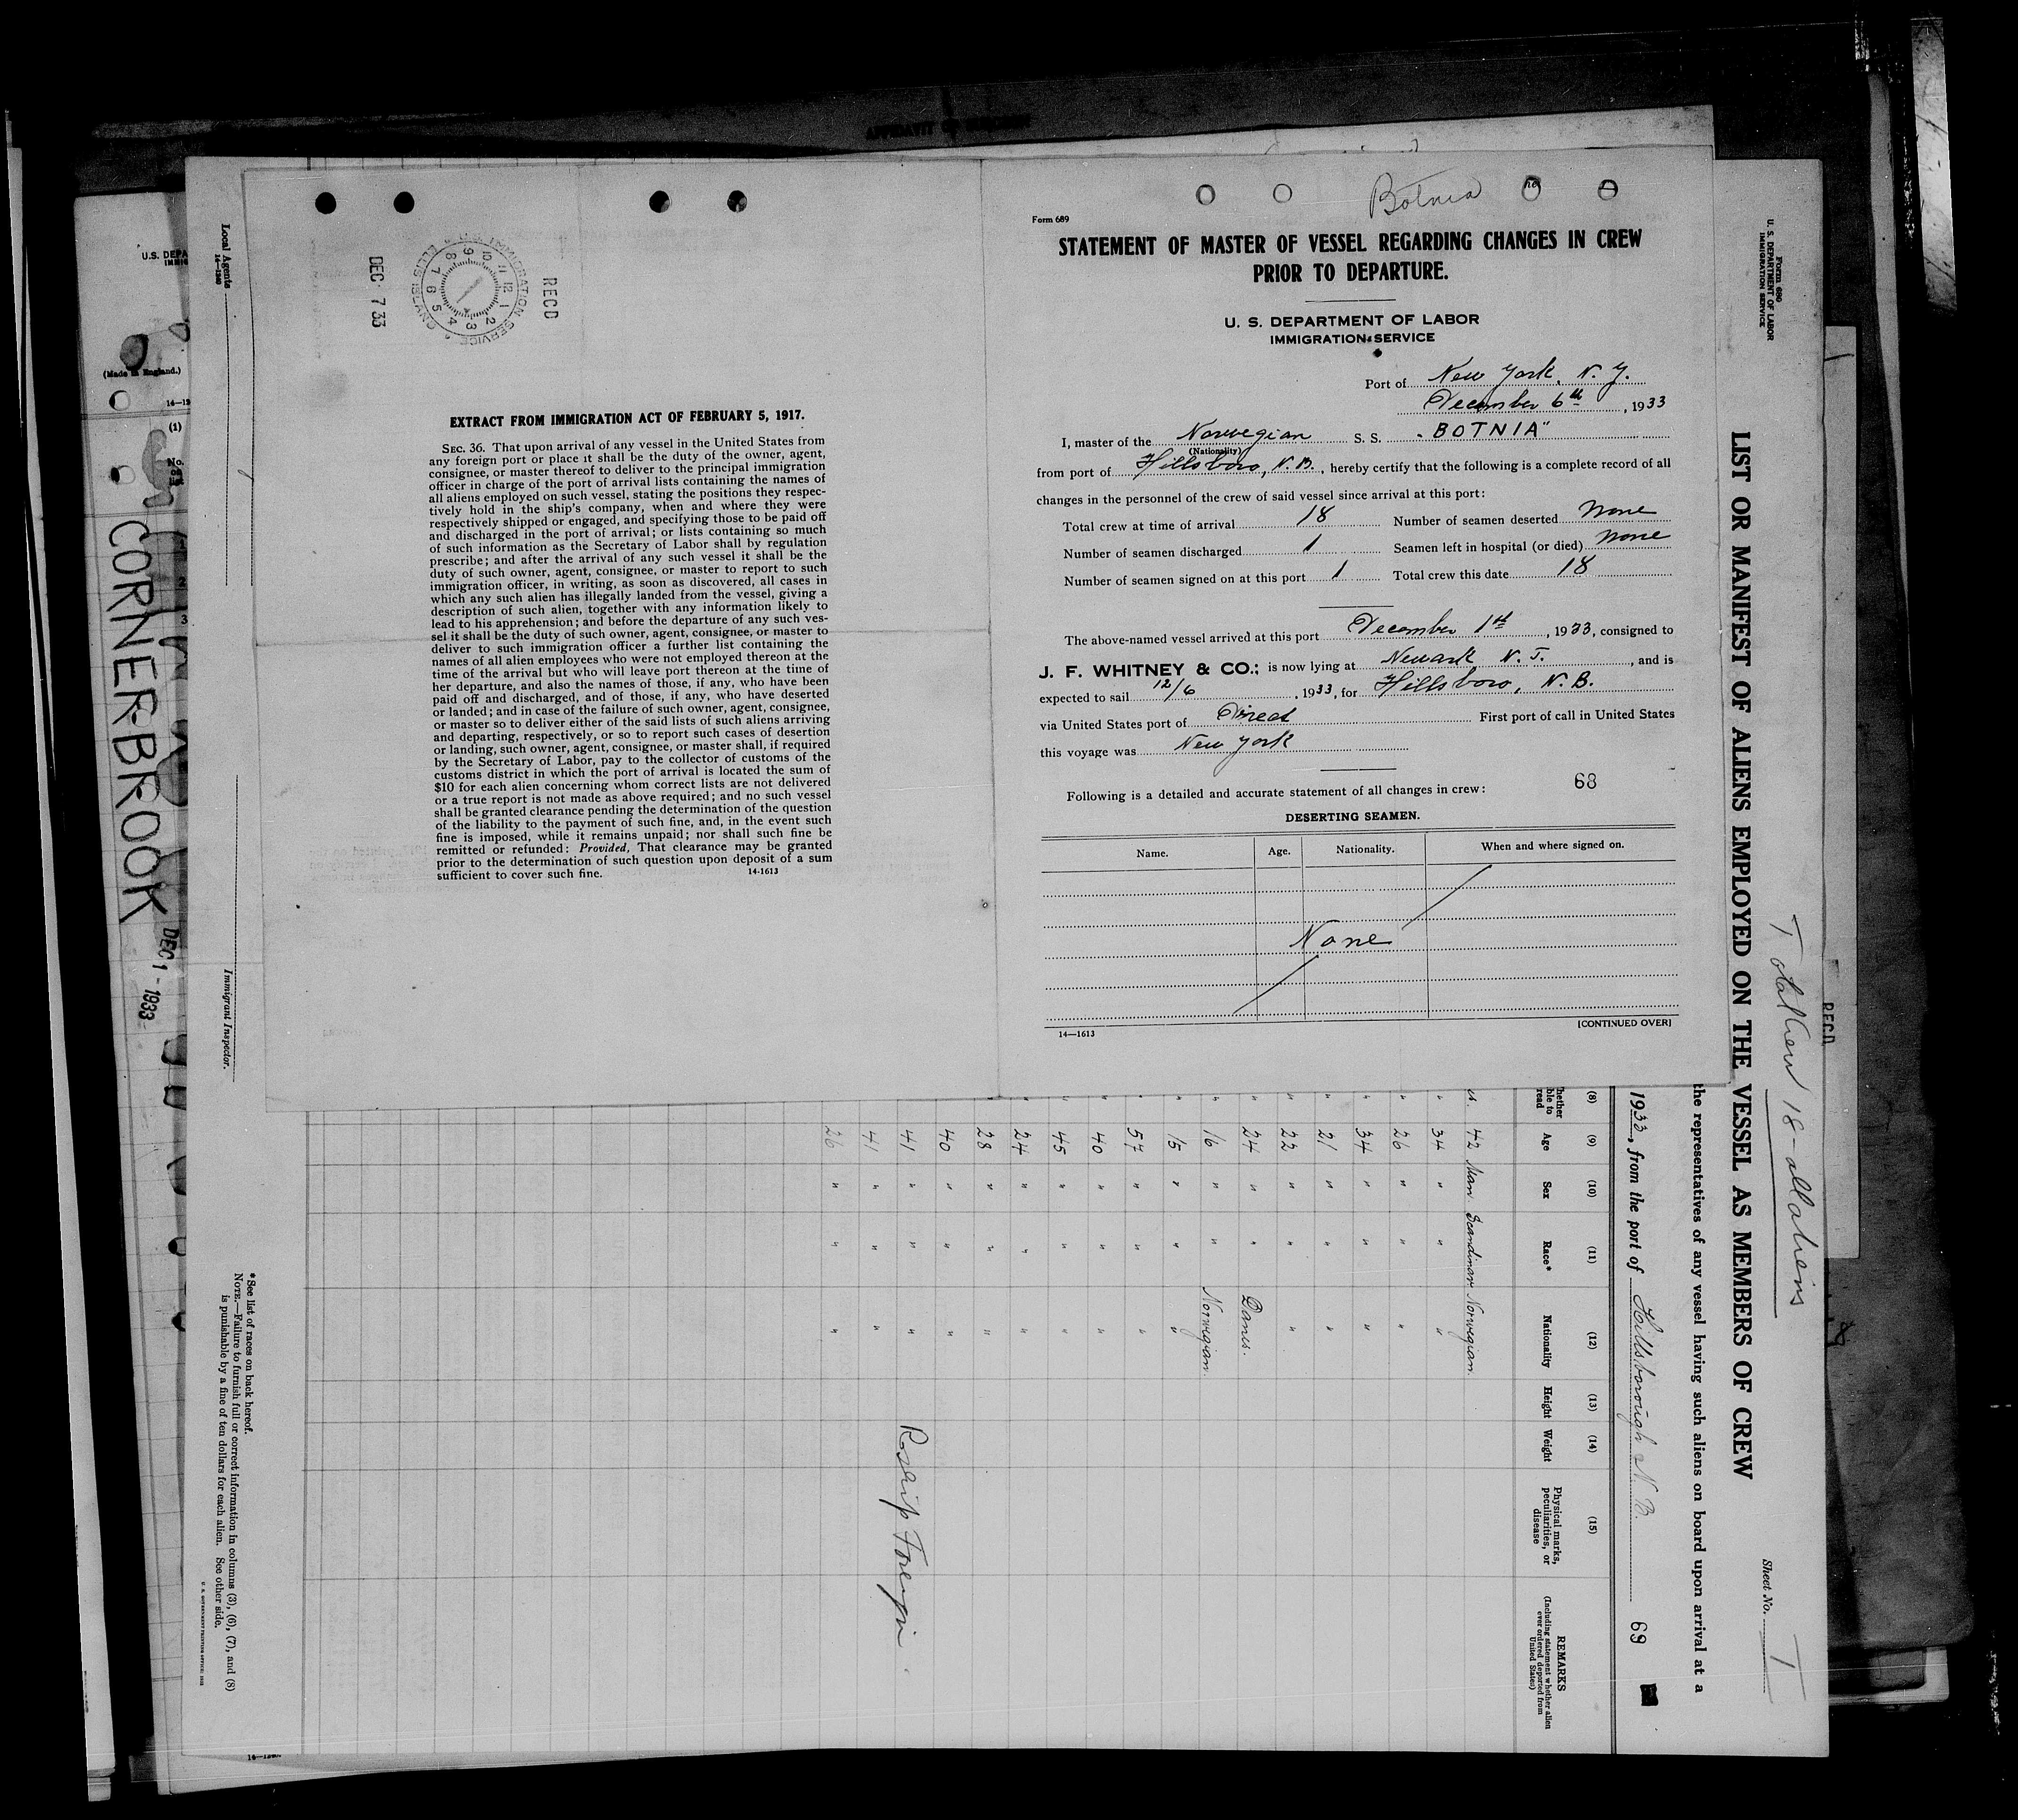 Botnia
Form 689
STATEMENT OF MASTER OF VESSEL REGARDING CHANGES IN CREW
PRIOR TO DEPARTURE.
U. S. DEPARTMENT OF LABOR
IMMIGRATION SERVICE
Port of New York, N. Y.
December 6th, 1933
I, master of the Norwegian S. S. "BOTNIA"
(Nationality)
from port of Hillsboro, N. B., hereby certify that the following is a complete record of all
changes in the personnel of the crew of said vessel since arrival at this port:
Total crew at time of arrival 18 Number of seamen deserted None
Number of seamen discharged 1 Seamen left in hospital (or died) None
Number of seamen signed on at this port 1 Total crew this date 18
The above-named vessel arrived at this port December 1st, 1933, consigned to
J. F. WHITNEY & CO.; is now lying at Newark N. J., and is
expected to sail 12/6, 1933, for Hillsboro, N. B.
via United States port of Direct First port of call in United States
this voyage was New York
68
Following is a detailed and accurate statement of all changes in crew:
DESERTING SEAMEN.
Name. Age. Nationality. When and where signed on.
None
14—1613 [CONTINUED OVER]
RECD
U.S. IMMIGRATION SERVICE ELLIS ISLAND
9 10 11 12 1 2 3 4 5 6 7 8
DEC 7 33
EXTRACT FROM IMMIGRATION ACT OF FEBRUARY 5, 1917.
SEC. 36. That upon arrival of any vessel in the United States from
any foreign port or place it shall be the duty of the owner, agent,
consignee, or master thereof to deliver to the principal immigration
officer in charge of the port of arrival lists containing the names of
all aliens employed on such vessel, stating the positions they respec-
tively hold in the ship's company, when and where they were
respectively shipped or engaged, and specifying those to be paid off
and discharged in the port of arrival; or lists containing so much
of such information as the Secretary of Labor shall by regulation
prescribe; and after the arrival of any such vessel it shall be the
duty of such owner, agent, consignee, or master to report to such
immigration officer, in writing, as soon as discovered, all cases in
which any such alien has illegally landed from the vessel, giving a
description of such alien, together with any information likely to
lead to his apprehension; and before the departure of any such ves-
sel it shall be the duty of such owner, agent, consignee, or master to
deliver to such immigration officer a further list containing the
names of all alien employees who were not employed thereon at the
time of the arrival but who will leave port thereon at the time of
her departure, and also the names of those, if any, who have been
paid off and discharged, and of those, if any, who have deserted
or landed; and in case of the failure of such owner, agent, consignee,
or master so to deliver either of the said lists of such aliens arriving
and departing, respectively, or so to report such cases of desertion
or landing, such owner, agent, consignee, or master shall, if required
by the Secretary of Labor, pay to the collector of customs of the
customs district in which the port of arrival is located the sum of
$10 for each alien concerning whom correct lists are not delivered
or a true report is not made as above required; and no such vessel
shall be granted clearance pending the determination of the question
of the liability to the payment of such fine, and, in the event such
fine is imposed, while it remains unpaid; nor shall such fine be
remitted or refunded: Provided, That clearance may be granted
prior to the determination of such question upon deposit of a sum
sufficient to cover such fine. 14-1613
Form 680
U. S. DEPARTMENT OF LABOR
IMMIGRATION SERVICE
Sheet No. 1
LIST OR MANIFEST OF ALIENS EMPLOYED ON THE VESSEL AS MEMBERS OF CREW
Total Crew 18 - all aliens
the representatives of any vessel having such aliens on board upon arrival at a
1933, from the port of Hillsborough N. B.
69
(8) (9) (10) (11) (12) (13) (14) (15)
hether ble to read Age Sex Race* Nationality Height Weight Physical marks, peculiarities, or disease REMARKS (Including statement whether alien ever ordered deported from United States)
42 Man Scandinav Norwegian.
34 " " "
26 " " "
34 " " "
21 " " "
22 " " "
24 " " Danis.
16 " " Norwegian.
15 " " "
57 " " "
40 " " "
45 " " "
24 " " "
28 " " "
40 " " "
41 " " "
41 " " "
26 " " "
Reship Foreign
*See list of races on back hereof.
NOTE.—Failure to furnish full or correct information in columns (3), (6), (7), and (8)
is punishable by a fine of ten dollars for each alien. See other side.
Local Agents
14—1240
Immigrant Inspector.
U.S. DEPA
IMMIG
(Made in England.)
14—12
(1)
No.
on
list
2
3
CORNERBROOK
DEC 1 - 1933
RECD